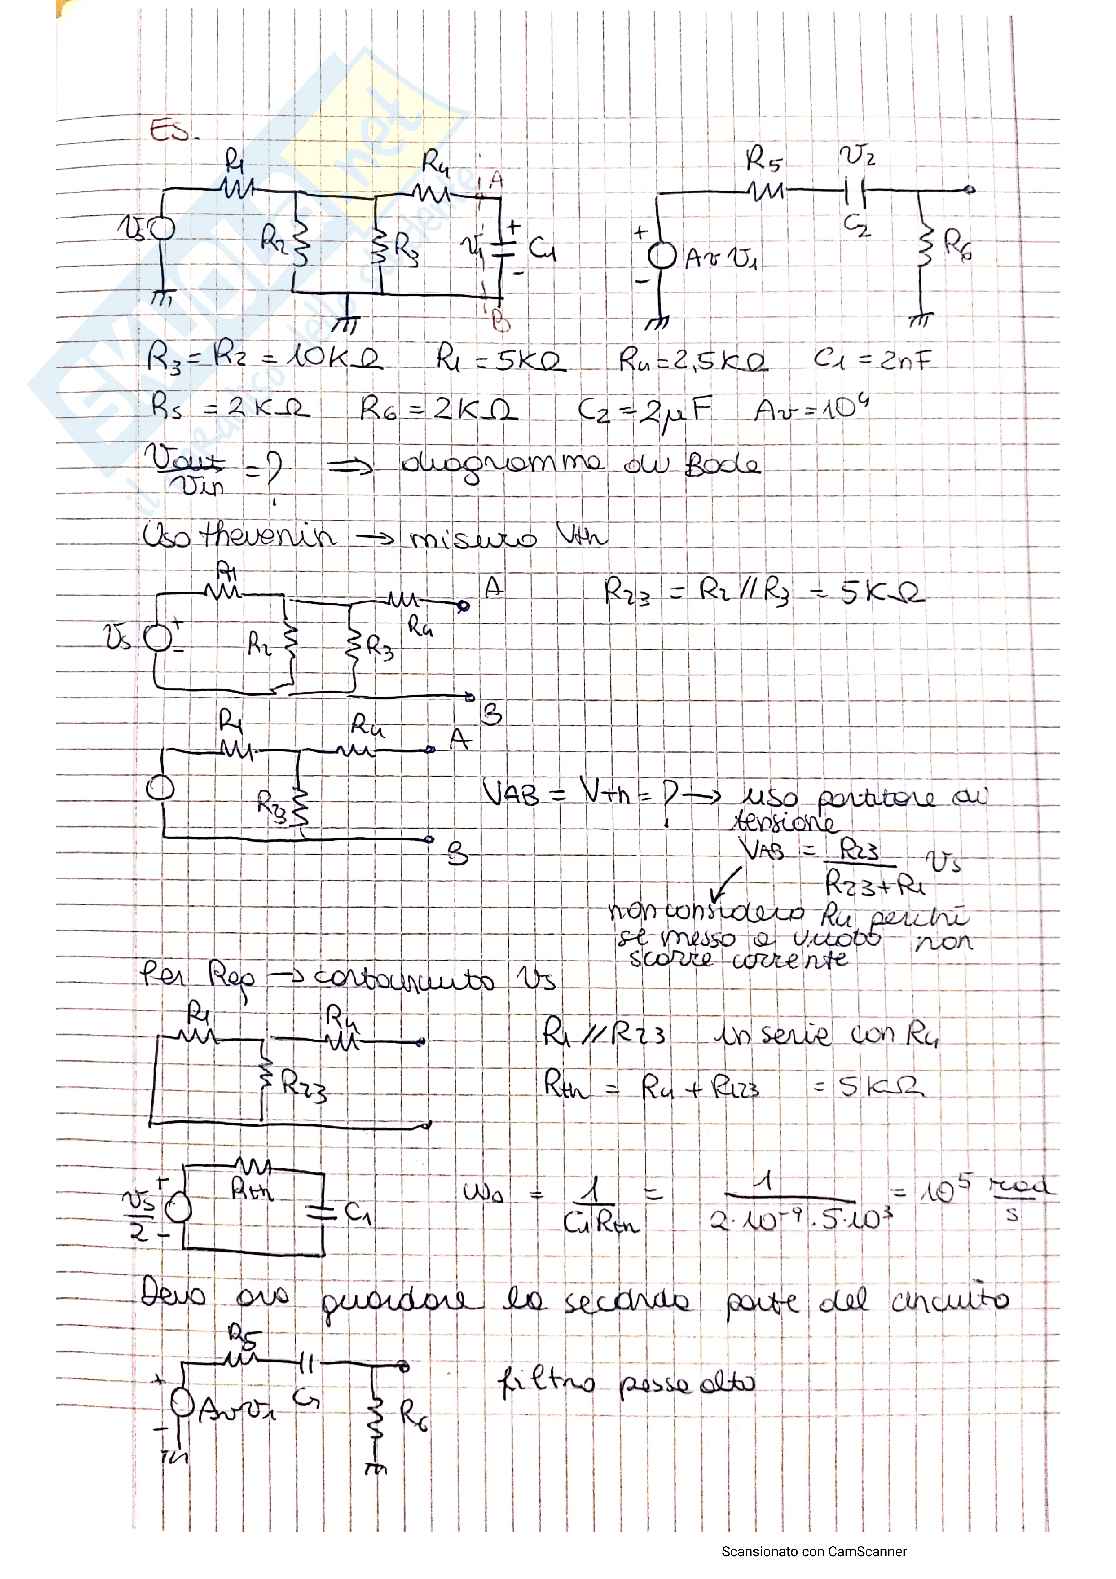 ES.
R1 R4 A R5 V2
Vs R2 R3 V1 + - C1 + - Av V1 C2 R6
B
R3 = R2 = 10KΩ R1 = 5KΩ R4 = 2,5KΩ C1 = 2nF
R5 = 2KΩ R6 = 2KΩ C2 = 2μF Av = 10⁴
Vout/Vin = ? ⇒ diagramma di Bode
Uso thevenin → misuro Vth
R1 A R23 = R2 // R3 = 5KΩ
Vs + - R2 R3 R4
B
R1 R4 A
R23 VAB = Vth = ? → uso partitore di
tensione
B VAB = R23/(R23+R1) Vs
non considero R4 perchè
se messo a vuoto non
scorre corrente
Per Req → cortocircuito Vs
R1 R4 R1 // R23 in serie con R4
R23 Rth = R4 + R123 = 5KΩ
Vs/2 + - Rth C1 ω0 = 1/(C1 Rth) = 1/(2·10⁻⁹·5·10³) = 10⁵ rad/s
Devo ora guardare la seconda parte del circuito
R5
+ - AvV1 C2 R6 filtro passa alto
Scansionato con CamScanner